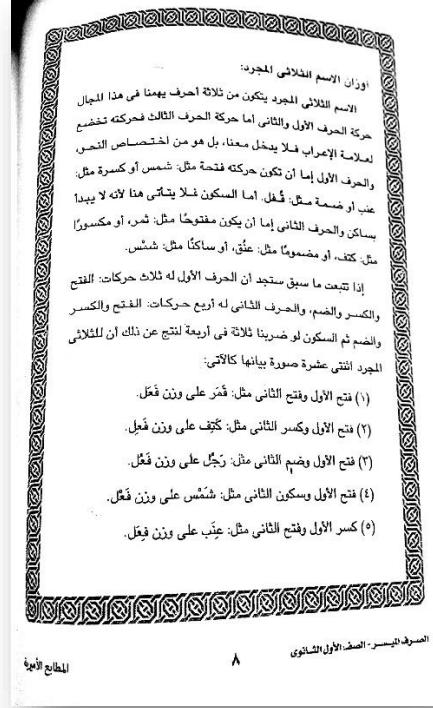 أوزان الاسم الثلاثى المجرد:
الاسم الثلاثى المجرد يتكون من ثلاثة أحرف يهمنا فى هذا المجال
حركة الحرف الأول والثانى أما حركة الحرف الثالث فحركته تخضع
لعلامة الإعراب فلا يدخل معنا، بل هو من اختصاص النحو،
والحرف الأول إما أن تكون حركته فتحة مثل: شمس أو كسرة مثل:
عنب أو ضمة مثل: قُفل. أما السكون فلا يتأتى هنا لأنه لا يبدأ
بساكن والحرف الثانى إما أن يكون مفتوحًا مثل: ثمر، أو مكسورًا
مثل: كتف، أو مضمومًا مثل: عنُق، أو ساكنًا مثل: شمْس.
إذا تتبعت ما سبق ستجد أن الحرف الأول له ثلاث حركات: الفتح
والكسر والضم، والحرف الثانى له أربع حركات: الفتح والكسر
والضم ثم السكون لو ضربنا ثلاثة فى أربعة لنتج عن ذلك أن للثلاثى
المجرد اثنتى عشرة صورة بيانها كالآتى:
(١) فتح الأول وفتح الثانى مثل: قَمَر على وزن فَعَل.
(٢) فتح الأول وكسر الثانى مثل: كَتِف على وزن فَعِل.
(٣) فتح الأول وضم الثانى مثل: رَجُل على وزن فَعُل.
(٤) فتح الأول وسكون الثانى مثل: شَمْس على وزن فَعْل.
(٥) كسر الأول وفتح الثانى مثل: عِنَب على وزن فِعَل.
الصرف الميسر - الصف الأول الثانوى
٨
المطابع الأميرية